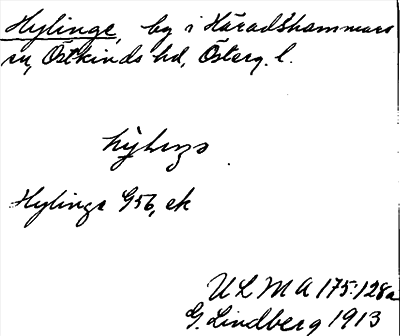 Hylinge, by i Häradshammars
sn, Östkinds hd, Österg. l.
Hylinge G56, ek
ULMA 175:128a
G. Lindberg 1913